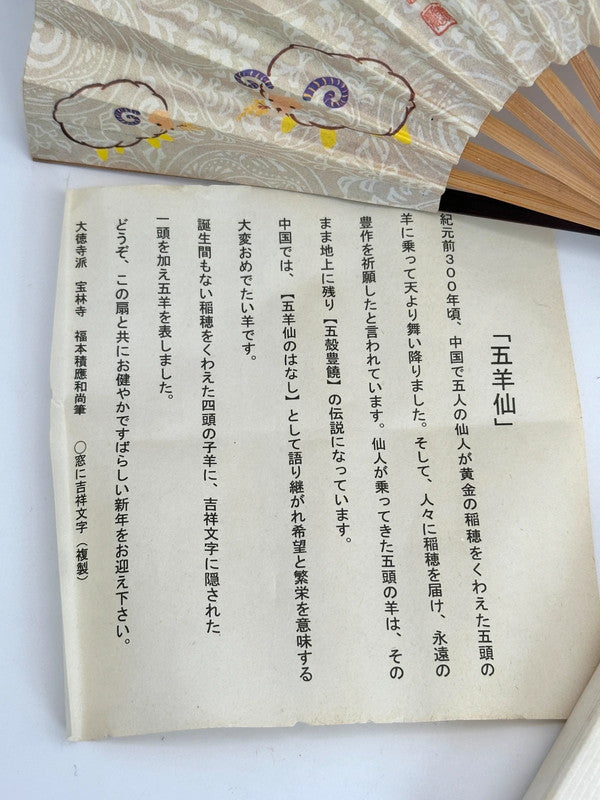 「五羊仙」
紀元前３００年頃、中国で五人の仙人が黄金の稲穂をくわえた五頭の
羊に乗って天より舞い降りました。そして、人々に稲穂を届け、永遠の
豊作を祈願したと言われています。仙人が乗ってきた五頭の羊は、その
まま地上に残り【五殻豊饒】の伝説になっています。
中国では、【五羊仙のはなし】として語り継がれ希望と繁栄を意味する
大変おめでたい羊です。
誕生間もない稲穂をくわえた四頭の子羊に、吉祥文字に隠された
一頭を加え五羊を表しました。
どうぞ、この扇と共にお健やかですばらしい新年をお迎え下さい。
大徳寺派　宝林寺　福本積應和尚筆　〇窓に吉祥文字（複製）